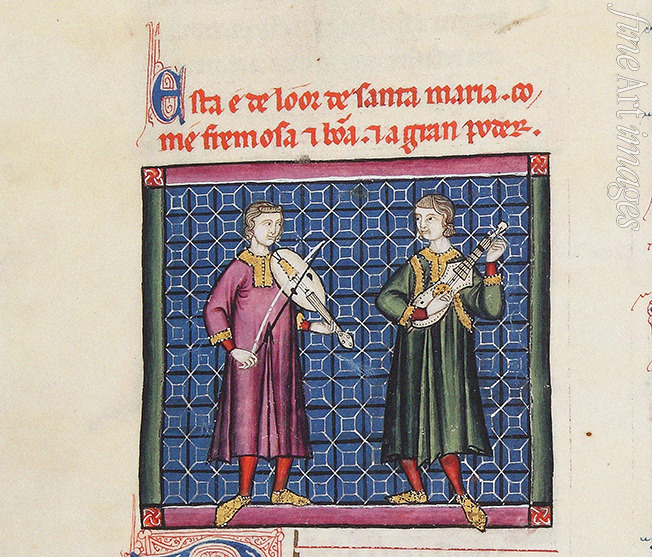 Esta e de loor de santa maria. co/
me fremosa ⁊ bõa. ⁊ a gran poder.
fineArtimages